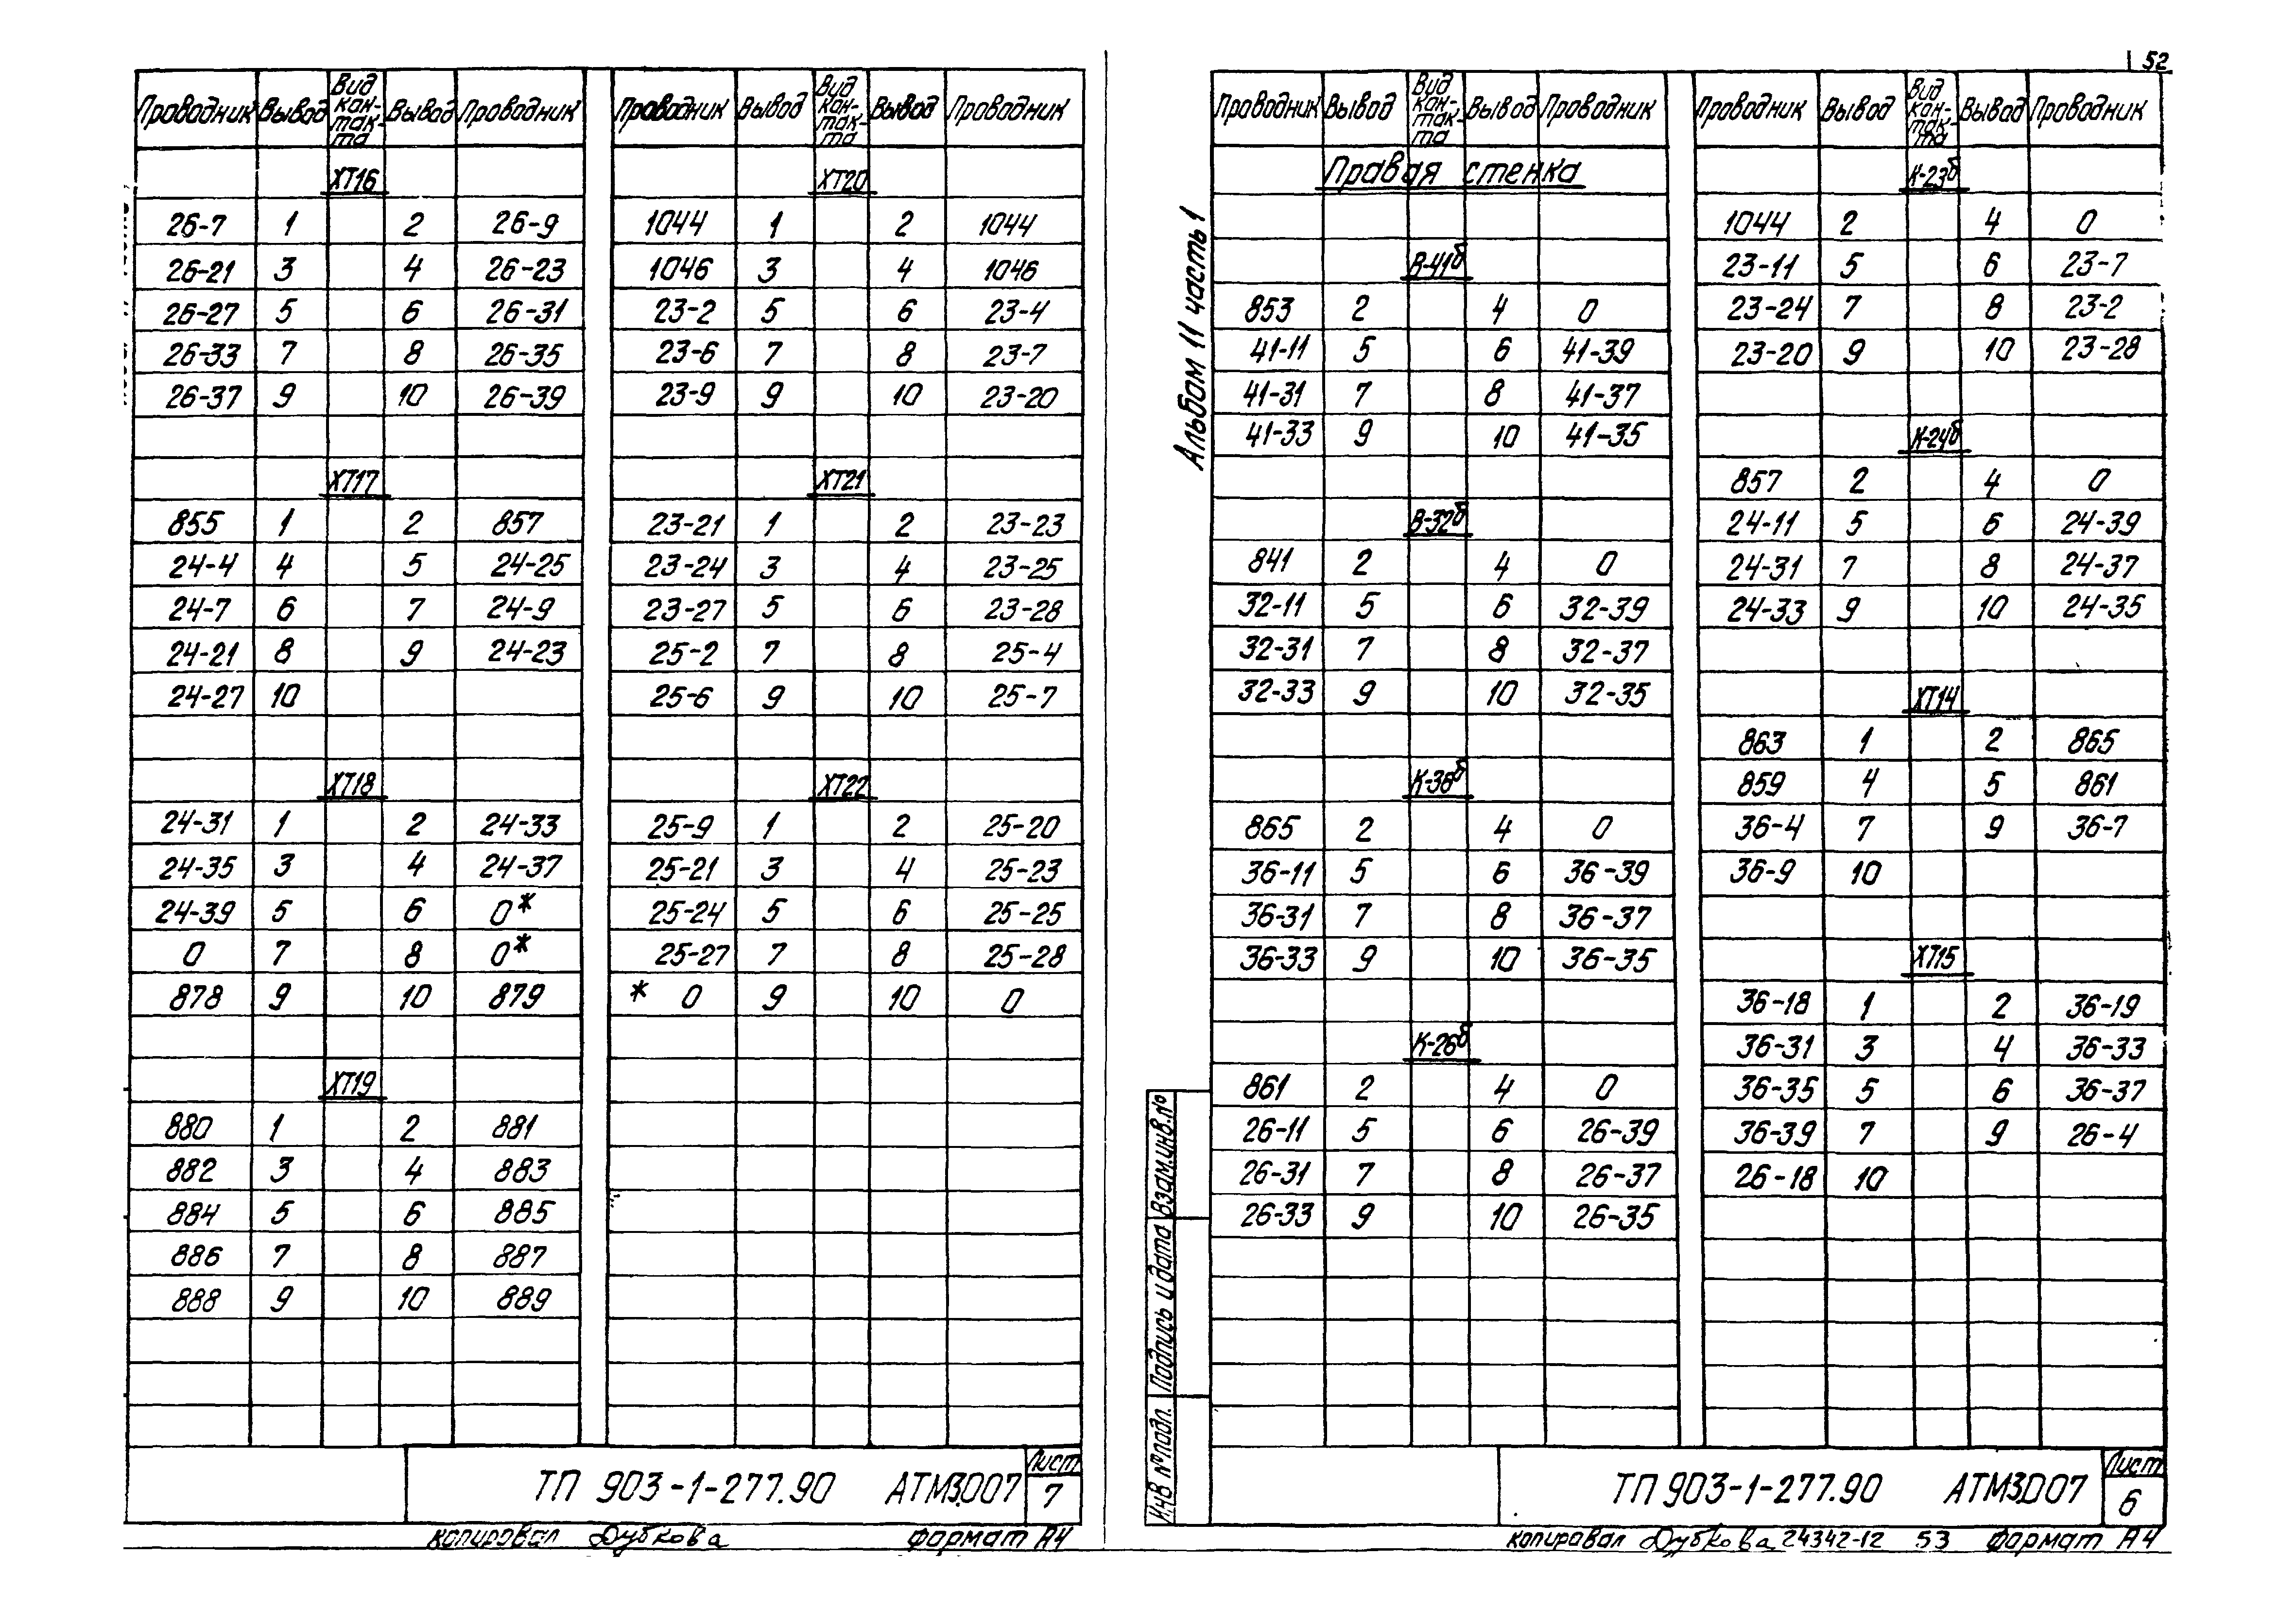 Проводник Вывод Вид кон-так-та Вывод Проводник
ХТ16
26-7 1 2 26-9
26-21 3 4 26-23
26-27 5 6 26-31
26-33 7 8 26-35
26-37 9 10 26-39
ХТ17
855 1 2 857
24-4 4 5 24-25
24-7 6 7 24-9
24-21 8 9 24-23
24-27 10
ХТ18
24-31 1 2 24-33
24-35 3 4 24-37
24-39 5 6 0*
0 7 8 0*
878 9 10 879
ХТ19
880 1 2 881
882 3 4 883
884 5 6 885
886 7 8 887
888 9 10 889
Проводник Вывод Вид кон-так-та Вывод Проводник
ХТ20
1044 1 2 1044
1046 3 4 1046
23-2 5 6 23-4
23-6 7 8 23-7
23-9 9 10 23-20
ХТ21
23-21 1 2 23-23
23-24 3 4 23-25
23-27 5 6 23-28
25-2 7 8 25-4
25-6 9 10 25-7
ХТ22
25-9 1 2 25-20
25-21 3 4 25-23
25-24 5 6 25-25
25-27 7 8 25-28
* 0 9 10 0
ТП 903-1-277.90 АТМ3.007
Лист
7
копировал Дубкова формат А4
52
Альбом 11 часть 1
Проводник Вывод Вид кон-так-та Вывод Проводник
Правая стенка
В-41б
853 2 4 0
41-11 5 6 41-39
41-31 7 8 41-37
41-33 9 10 41-35
В-32б
841 2 4 0
32-11 5 6 32-39
32-31 7 8 32-37
32-33 9 10 32-35
К-36б
865 2 4 0
36-11 5 6 36-39
36-31 7 8 36-37
36-33 9 10 36-35
К-26б
861 2 4 0
26-11 5 6 26-39
26-31 7 8 26-37
26-33 9 10 26-35
Проводник Вывод Вид кон-так-та Вывод Проводник
К-23б
1044 2 4 0
23-11 5 6 23-7
23-24 7 8 23-2
23-20 9 10 23-28
К-24б
857 2 4 0
24-11 5 6 24-39
24-31 7 8 24-37
24-33 9 10 24-35
ХТ14
863 1 2 865
859 4 5 861
36-4 7 9 36-7
36-9 10
ХТ15
36-18 1 2 36-19
36-31 3 4 36-33
36-35 5 6 36-37
36-39 7 9 26-4
26-18 10
Взам.инв.№
Подпись и дата
Инв № подл.
ТП 903-1-277.90 АТМ3.007
Лист
6
копировал Дубкова 24342-12 53 формат А4